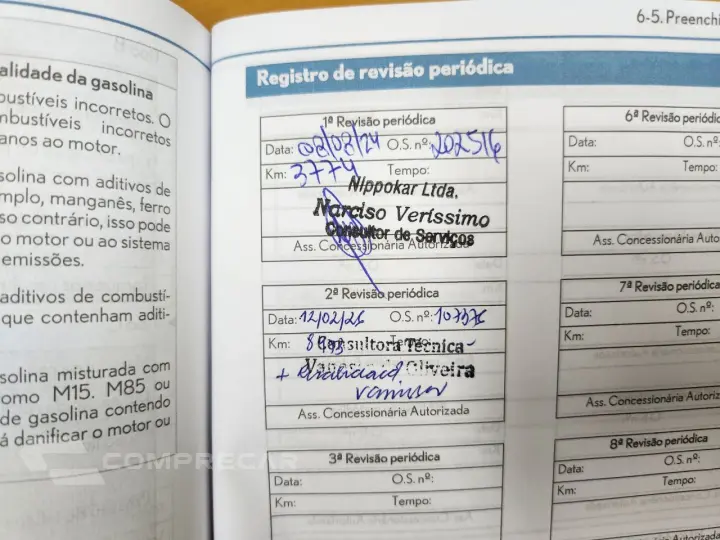 alidade da gasolina
bustíveis incorretos. O
mbustíveis incorretos
anos ao motor.
solina com aditivos de
mplo, manganês, ferro
so contrário, isso pode
o motor ou ao sistema
emissões.
aditivos de combustí-
que contenham aditi-
solina misturada com
omo M15. M85 ou
de gasolina contendo
á danificar o motor ou
6-5. Preenchi
Registro de revisão periódica
1ª Revisão periódica
Data: 08/08/24 O.S. nº: 202516
Km: 3774 Tempo:
Nippokar Ltda.
Narciso Veríssimo
Consultor de Serviços
Ass. Concessionária Autorizada
2ª Revisão periódica
Data: 12/02/26 O.S. nº: 107376
Km: Tempo:
Consultora Técnica
Oliveira
Ass. Concessionária Autorizada
3ª Revisão periódica
Data: O.S. nº:
Km: Tempo:
6ª Revisão periódic
Data: O.S. nº:
Km: Tempo:
Ass. Concessionária Autori
7ª Revisão periódica
Data: O.S. nº:
Km: Tempo:
Ass. Concessionária Autoriza
8ª Revisão periódica
Data: O.S. nº:
Km: Tempo:
COMPRECAR